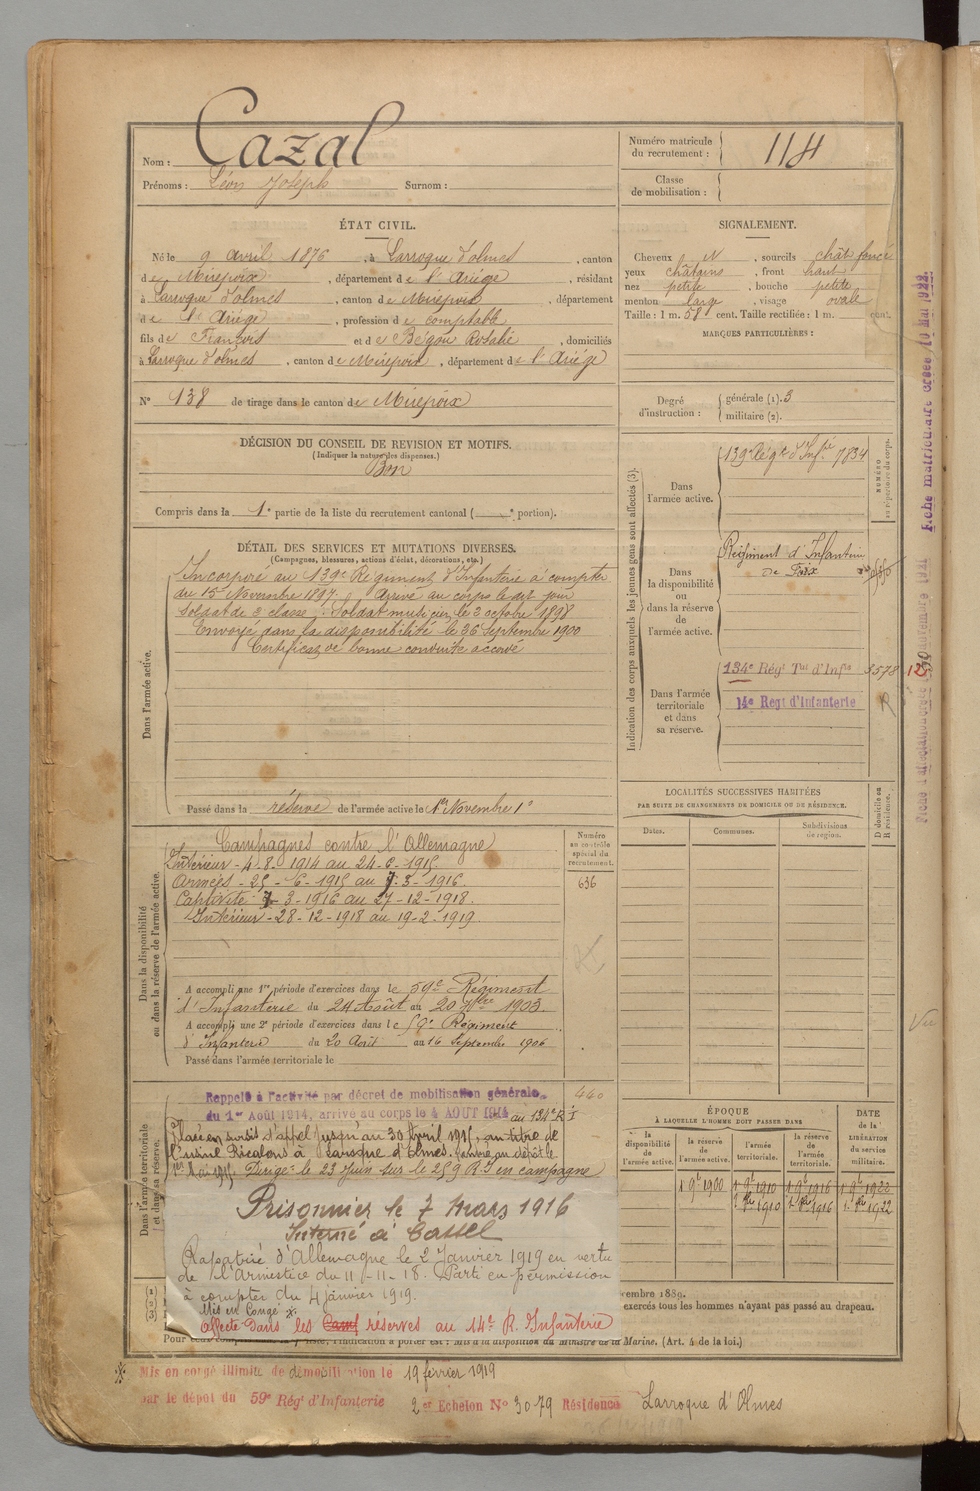 Nom : Cazal
Prénoms : Léon Joseph Surnom :
Numéro matricule du recrutement : 114
Classe de mobilisation :
ÉTAT CIVIL.
Né le 9 avril 1876, à Larroque d'olmes, canton
de Mirepoix, département de l'Ariége, résidant
à Larroque d'olmes, canton de Mirepoix, département
de l'Ariége, profession de comptable
fils de François et de Bégou Rosalie, domiciliés
à Larroque d'olmes, canton de Mirepoix, département de l'Ariége
N° 138 de tirage dans le canton de Mirepoix
SIGNALEMENT.
Cheveux N, sourcils chât foncé
yeux châtains, front haut
nez petite, bouche petite
menton large, visage ovale
Taille : 1 m. 58 cent. Taille rectifiée : 1 m. cent.
MARQUES PARTICULIÈRES :
Degré d'instruction : générale (1). 3
militaire (2).
DÉCISION DU CONSEIL DE REVISION ET MOTIFS.
(Indiquer la nature des dispenses.)
Bon
Compris dans la 1e partie de la liste du recrutement cantonal ( e portion).
DÉTAIL DES SERVICES ET MUTATIONS DIVERSES.
(Campagnes, blessures, actions d'éclat, décorations, etc.)
Dans l'armée active.
Incorporé au 139e Régiment d'Infanterie à compter
du 15 Novembre 1897. Arrivé au corps le dit jour
Soldat de 2 classe. Soldat musicien le 3 octobre 1898
Envoyé dans la disponibilité le 26 Septembre 1900
Certificat de bonne conduite accordé
Passé dans la réserve de l'armée active le 1er Novembre 1
Dans la disponibilité ou dans la réserve de l'armée active.
Campagnes contre l'Allemagne
Intérieur - 4-8-1914 au 24-6-1915
Armées - 25-6-1915 au 7-3-1916.
Captivité : 7-3-1916 au 27-12-1918.
Intérieur - 28-12-1918 au 19-2-1919.
Numéro au contrôle spécial du recrutement.
636
A accompli une 1re période d'exercices dans le 59e Régiment
d'Infanterie du 24 Août au 20 7bre 1903.
A accompli une 2e période d'exercices dans le 59e Régiment
d'Infanterie du 20 Août au 16 Septembre 1906
Passé dans l'armée territoriale le
Indication des corps auxquels les jeunes gens sont affectés (3).
NUMÉRO au répertoire du corps.
Dans l'armée active.
139e Régt d'Infie 7834
Dans la disponibilité ou dans la réserve de l'armée active.
Régiment d'Infanterie
de Foix
Dans l'armée territoriale et dans sa réserve.
134e Régt Tal d'Infie 3578
14e Regt d'Infanterie
LOCALITÉS SUCCESSIVES HABITÉES
PAR SUITE DE CHANGEMENTS DE DOMICILE OU DE RÉSIDENCE.
Dates. Communes. Subdivisions de région. D domicile ou R résidence.
Dans l'armée territoriale et dans sa réserve.
Rappelé à l'activité par décret de mobilisation générale
du 1er Août 1914, arrivé au corps le 4 AOUT 1914 au 134e R I
440
Placé en sursit d'appel jusqu'au 30 Avril 1915, au titre de
l'usine Ricalens à Laroque d'Olmes. Rentré au dépôt le
1er Mai 1915. Dirigé le 23 Juin sur le 259 R.I en campagne
Prisonnier le 7 Mars 1916
Interné à Cassel
Rapatrié d'Allemagne le 2 Janvier 1919 en vertu
de l'Armistice du 11-11-18. Parti en permission
à compter du 4 janvier 1919.
Mis en Congé *.
Affecté dans les réserves au 14e R. Infanterie
ÉPOQUE
À LAQUELLE L'HOMME DOIT PASSER DANS
la disponibilité de l'armée active. la réserve de l'armée active. l'armée territoriale. la réserve de l'armée territoriale.
DATE de la LIBÉRATION du service militaire.
1 9e 1900 1 9e 1910 1 9e 1916 1 9e 1922
1910 1916 1922
(1)
(2)
(3)
vembre 1889.
exercés tous les hommes n'ayant pas passé au drapeau.
l'indication à porter est : Mis à la disposition du Ministre de la Marine. (Art. 4 de la loi.)
* Mis en congé illimité de démobilisation le 19 février 1919
par le dépôt du 59e Rég d'Infanterie 2er Echelon No 3079 Résidence Larroque d'Olmes
Fiche matriculaire créée 10 Mai 1922.
Vu